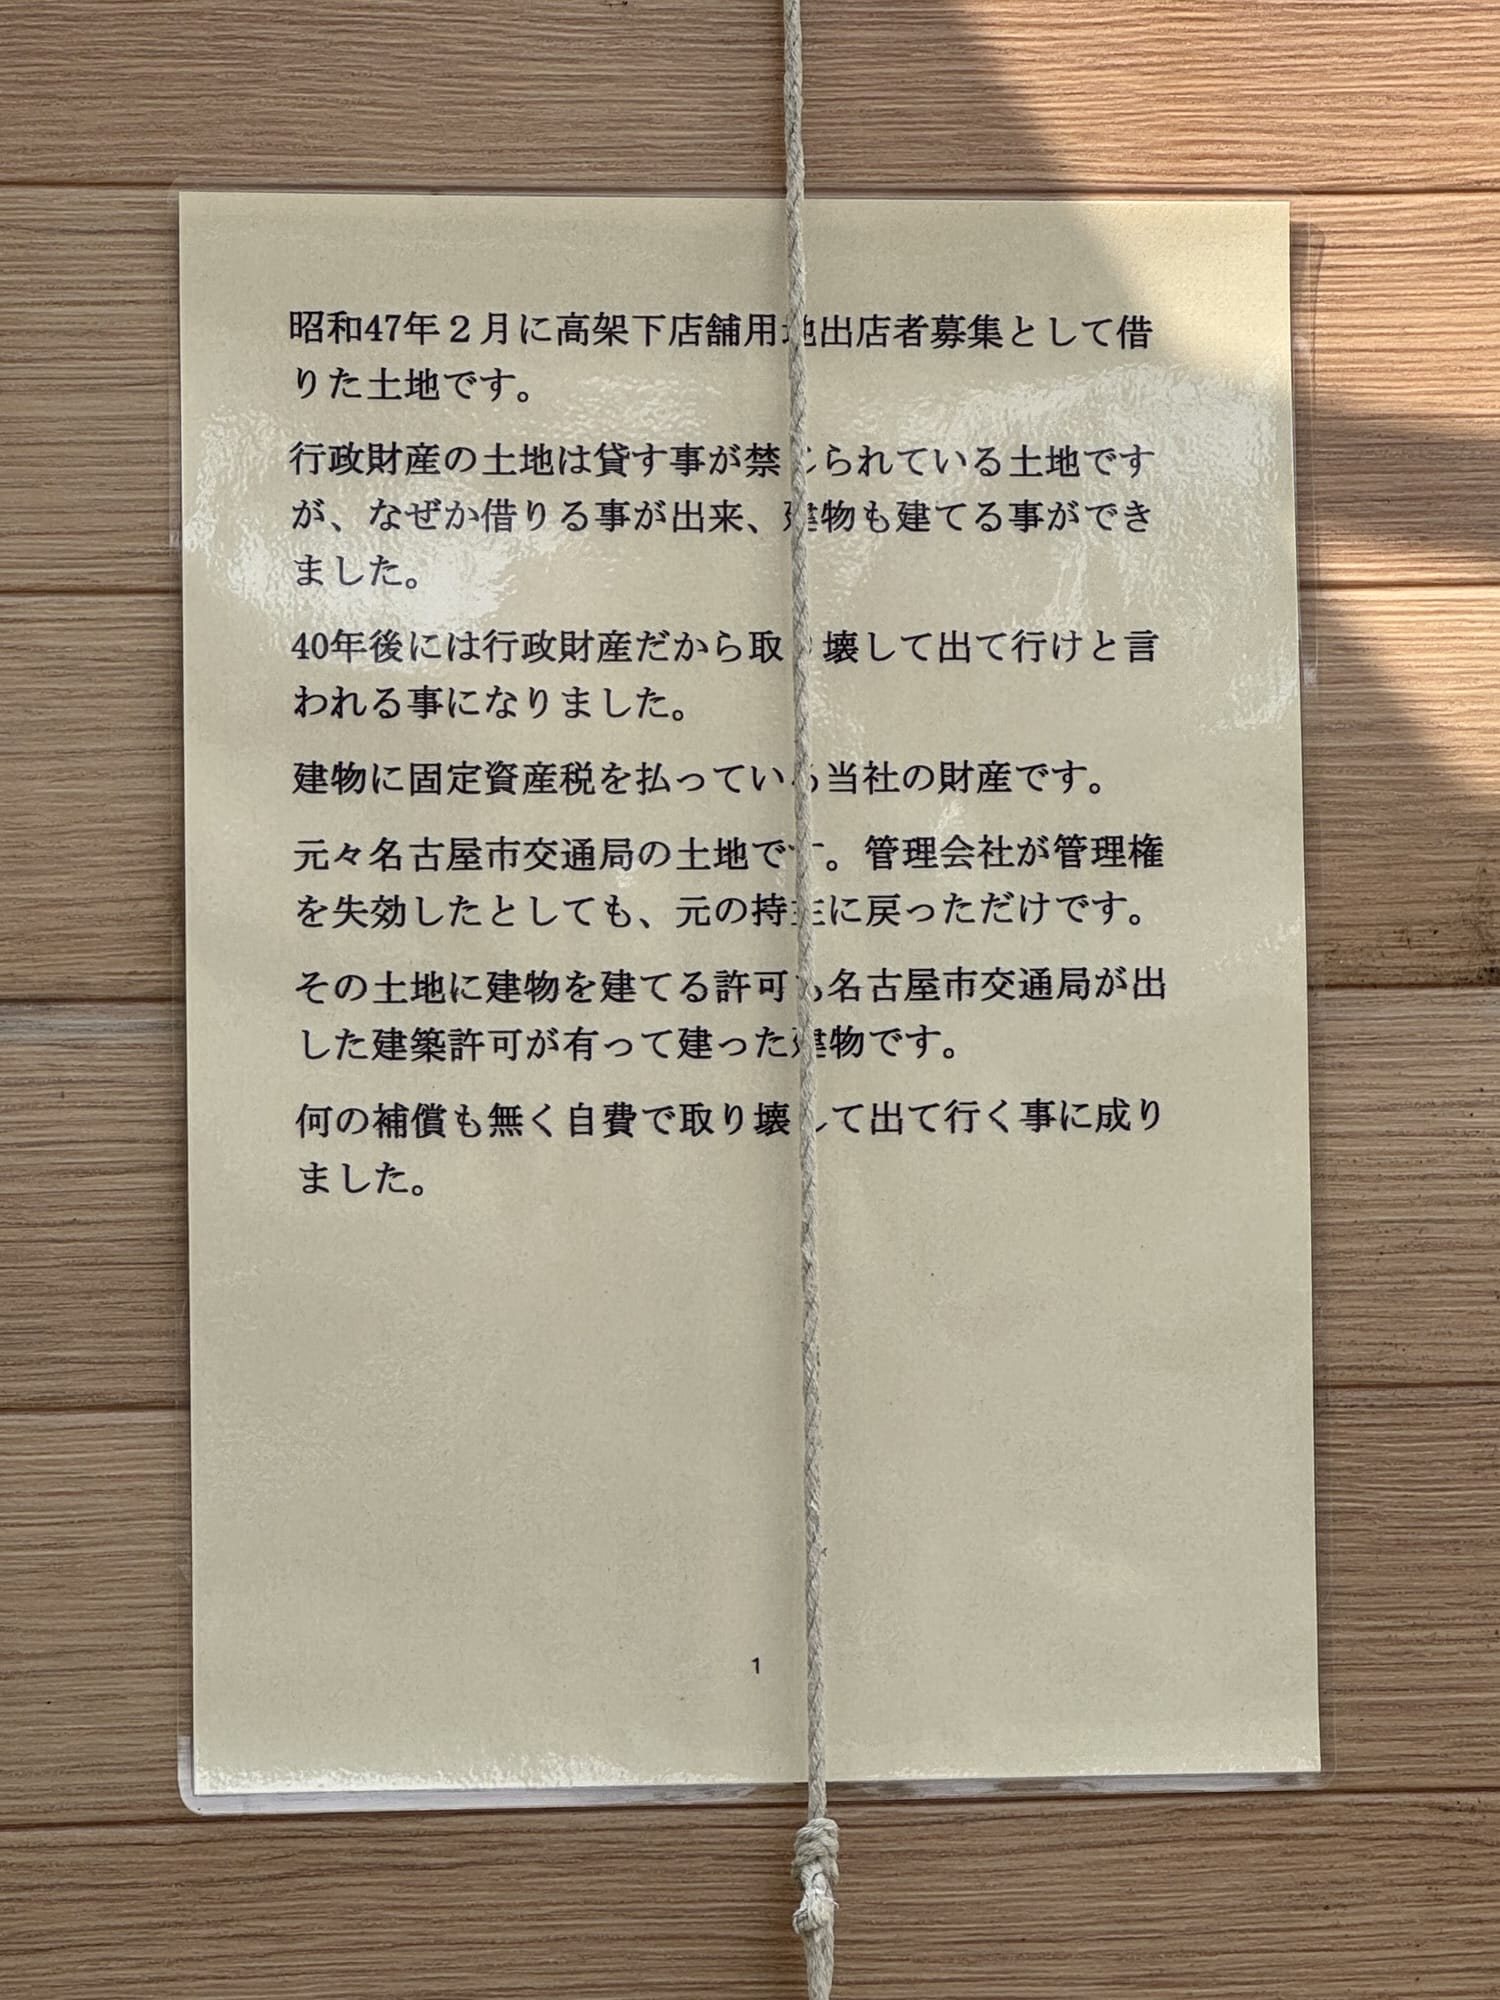 昭和47年２月に高架下店舗用地出店者募集として借
りた土地です。
行政財産の土地は貸す事が禁じられている土地です
が、なぜか借りる事が出来、建物も建てる事ができ
ました。
40年後には行政財産だから取り壊して出て行けと言
われる事になりました。
建物に固定資産税を払っている当社の財産です。
元々名古屋市交通局の土地です。管理会社が管理権
を失効したとしても、元の持主に戻っただけです。
その土地に建物を建てる許可も名古屋市交通局が出
した建築許可が有って建った建物です。
何の補償も無く自費で取り壊して出て行く事に成り
ました。
1